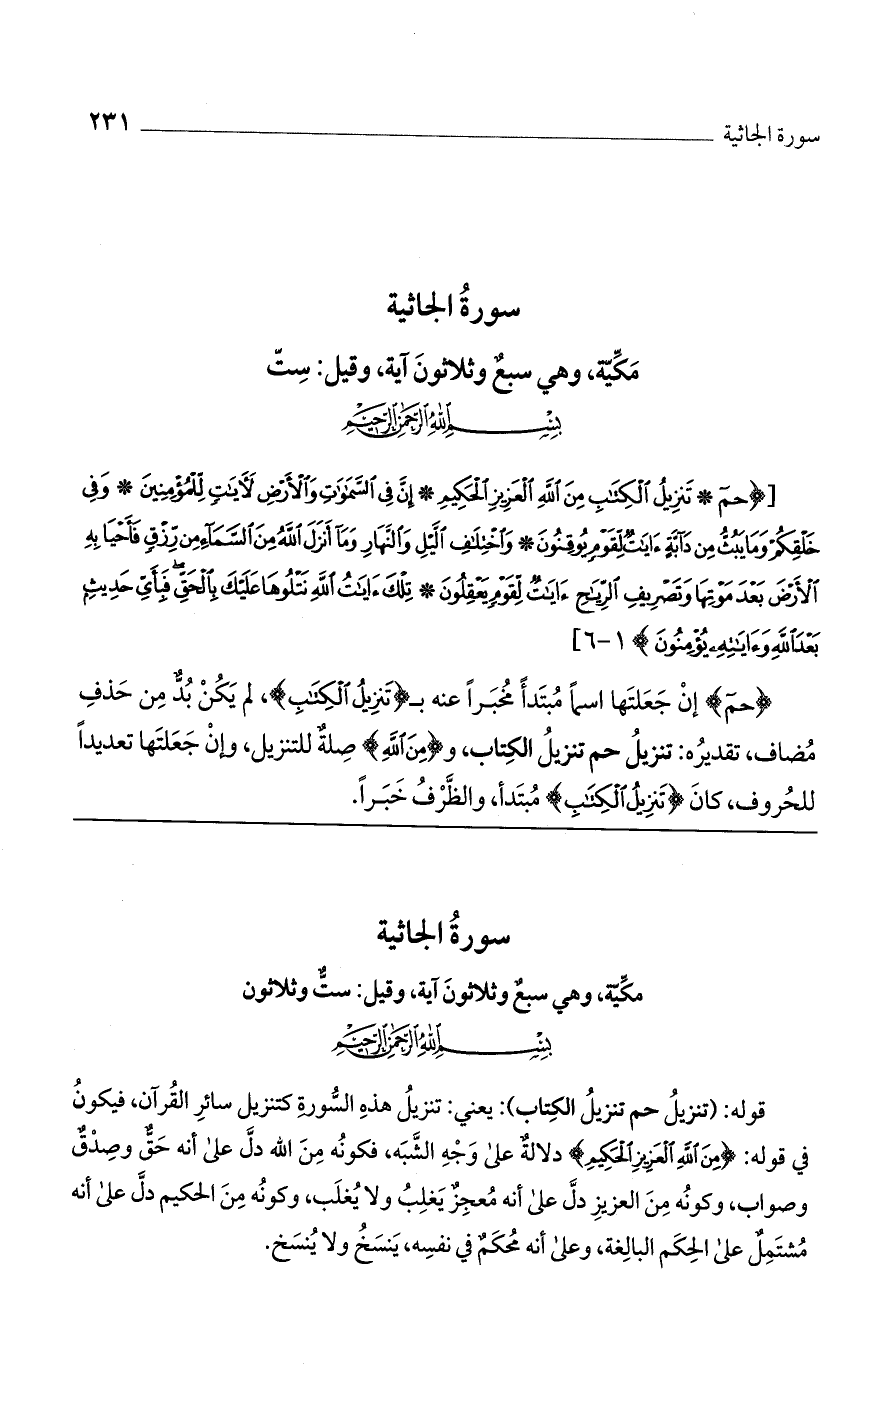 سورة الجاثية ٢٣١
سورةُ الجاثية
مَكِّيّة، وهي سبعٌ وثلاثونَ آية، وقيل: سِتّ
بِسْمِ ٱللَّهِ ٱلرَّحْمَٰنِ ٱلرَّحِيمِ
[﴿حمٓ * تَنزِيلُ ٱلْكِتَٰبِ مِنَ ٱللَّهِ ٱلْعَزِيزِ ٱلْحَكِيمِ * إِنَّ فِى ٱلسَّمَٰوَٰتِ وَٱلْأَرْضِ لَءَايَٰتٍ لِّلْمُؤْمِنِينَ * وَفِى
خَلْقِكُمْ وَمَا يَبُثُّ مِن دَآبَّةٍ ءَايَٰتٌ لِّقَوْمٍ يُوقِنُونَ * وَٱخْتِلَٰفِ ٱلَّيْلِ وَٱلنَّهَارِ وَمَآ أَنزَلَ ٱللَّهُ مِنَ ٱلسَّمَآءِ مِن رِّزْقٍ فَأَحْيَا بِهِ
ٱلْأَرْضَ بَعْدَ مَوْتِهَا وَتَصْرِيفِ ٱلرِّيَٰحِ ءَايَٰتٌ لِّقَوْمٍ يَعْقِلُونَ * تِلْكَ ءَايَٰتُ ٱللَّهِ نَتْلُوهَا عَلَيْكَ بِٱلْحَقِّ ۖ فَبِأَىِّ حَدِيثٍۭ
بَعْدَ ٱللَّهِ وَءَايَٰتِهِۦ يُؤْمِنُونَ﴾ ١-٦]
﴿حمٓ﴾ إنْ جَعَلتَها اسماً مُبتَدأً مُخبَراً عنه بـ﴿تَنزِيلُ ٱلْكِتَٰبِ﴾، لم يَكُنْ بُدٌّ مِن حَذفِ
مُضاف، تقديرُه: تنزيلُ حم تنزيلُ الكتاب، و﴿مِنَ ٱللَّهِ﴾ صِلةٌ للتنزيل، وإنْ جَعَلتَها تعديداً
للحُروف، كانَ ﴿تَنزِيلُ ٱلْكِتَٰبِ﴾ مُبتَدأ، والظَّرْفُ خَبَراً.
سورةُ الجاثية
مكِّيّة، وهي سبعٌ وثلاثونَ آية، وقيل: ستٌّ وثلاثون
بِسْمِ ٱللَّهِ ٱلرَّحْمَٰنِ ٱلرَّحِيمِ
قوله: (تنزيلُ حم تنزيلُ الكتاب): يعني: تنزيلُ هذهِ السُّورةِ كتنزيل سائرِ القُرآن، فيكونُ
في قوله: ﴿مِنَ ٱللَّهِ ٱلْعَزِيزِ ٱلْحَكِيمِ﴾ دلالةٌ علىٰ وَجْهِ الشَّبَه، فكونُه مِنَ الله دلَّ علىٰ أنه حَقٌّ وصِدْقٌ
وصواب، وكونُه مِنَ العزيزِ دلَّ علىٰ أنه مُعجِزٌ يَغلِبُ ولا يُغلَب، وكونُه مِنَ الحكيم دلَّ علىٰ أنه
مُشتَمِلٌ علىٰ الحِكَم البالِغة، وعلىٰ أنه مُحكَمٌ في نفسِه، يَنسَخُ ولا يُنسَخ.